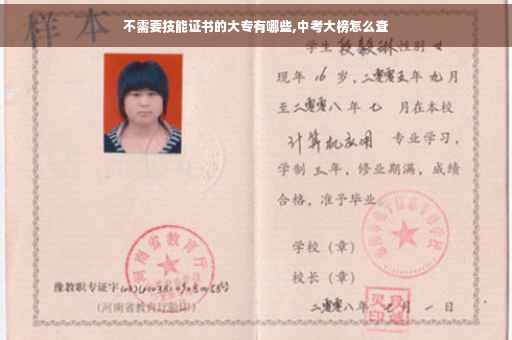 不需要技能证书的大专有哪些,中考大榜怎么查
样本
学生 段毅琳 性别 女
现年 16 岁，二零零五年九月
至二零零八年七 月在本校
计算机应用 专业学习，
学制 三 年，修业期满，成绩
合格，准予毕业
学校（章）
校长（章）
二零零八年七月一日
河南省教育厅
豫教职专证字
(河南省教育厅验印)